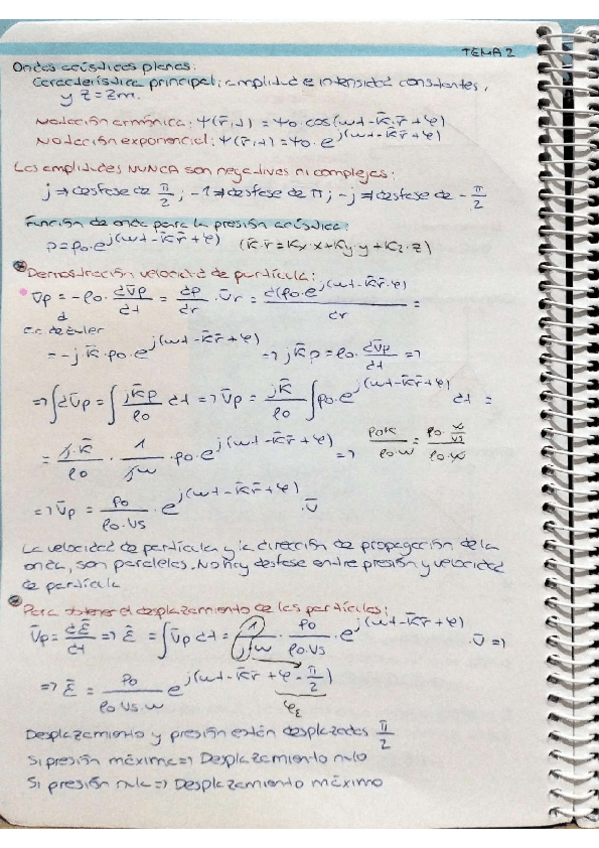 TEMA 2
Ondas acústicas planas:
Característica principal: amplitud e intensidad constantes,
y Z = Zm.
Notación armónica: Ψ(r̄,t) = Ψo · cos(ωt - k̄·r̄ + φ)
Notación exponencial: Ψ(r̄,t) = Ψo · e^j(ωt - k̄r̄ + φ)
Las amplitudes NUNCA son negativas ni complejas:
j ⇒ desfase de π/2 ; -1 ⇒ desfase de π ; -j ⇒ desfase de -π/2
Función de onda para la presión acústica:
p = po · e^j(ωt - k̄r̄ + φ) (k̄·r̄ = kx·x + ky·y + kz·z)
Demostración velocidad de partícula:
∇p = -ρo · dv̄p/dt = dp/dr · ūr = d(po·e^j(ωt - k̄r̄·φ))/dr =
Ec. de Euler
= -j·k̄·po·e^j(ωt - k̄r̄ + φ) ⇒ jk̄p = ρo · dv̄p/dt ⇒
⇒ ∫dv̄p = ∫ jk̄p/ρo dt ⇒ v̄p = jk̄/ρo ∫po·e^j(ωt - k̄r̄ + φ) dt =
= j·k̄/ρo · 1/jω · po·e^j(ωt - k̄r̄ + φ) ⇒ po k/ρo·ω = po·ω/vs/ρo·ω
⇒ v̄p = po/ρo·vs · e^j(ωt - k̄r̄ + φ) · ū
La velocidad de partícula y la dirección de propagación de la
onda, son paralelas. No hay desfase entre presión y velocidad
de partícula
Para obtener el desplazamiento de las partículas:
v̄p = dε̄/dt ⇒ ε̄ = ∫v̄p dt = 1/jω · po/ρo·vs · e^j(ωt - k̄r̄ + φ) · ū ⇒
⇒ ε̄ = po/ρo vs·ω e^j(ωt - k̄r̄ + φ - π/2)
φε
Desplazamiento y presión están desplazadas π/2
Si presión máxima ⇒ Desplazamiento nulo
Si presión nula ⇒ Desplazamiento máximo